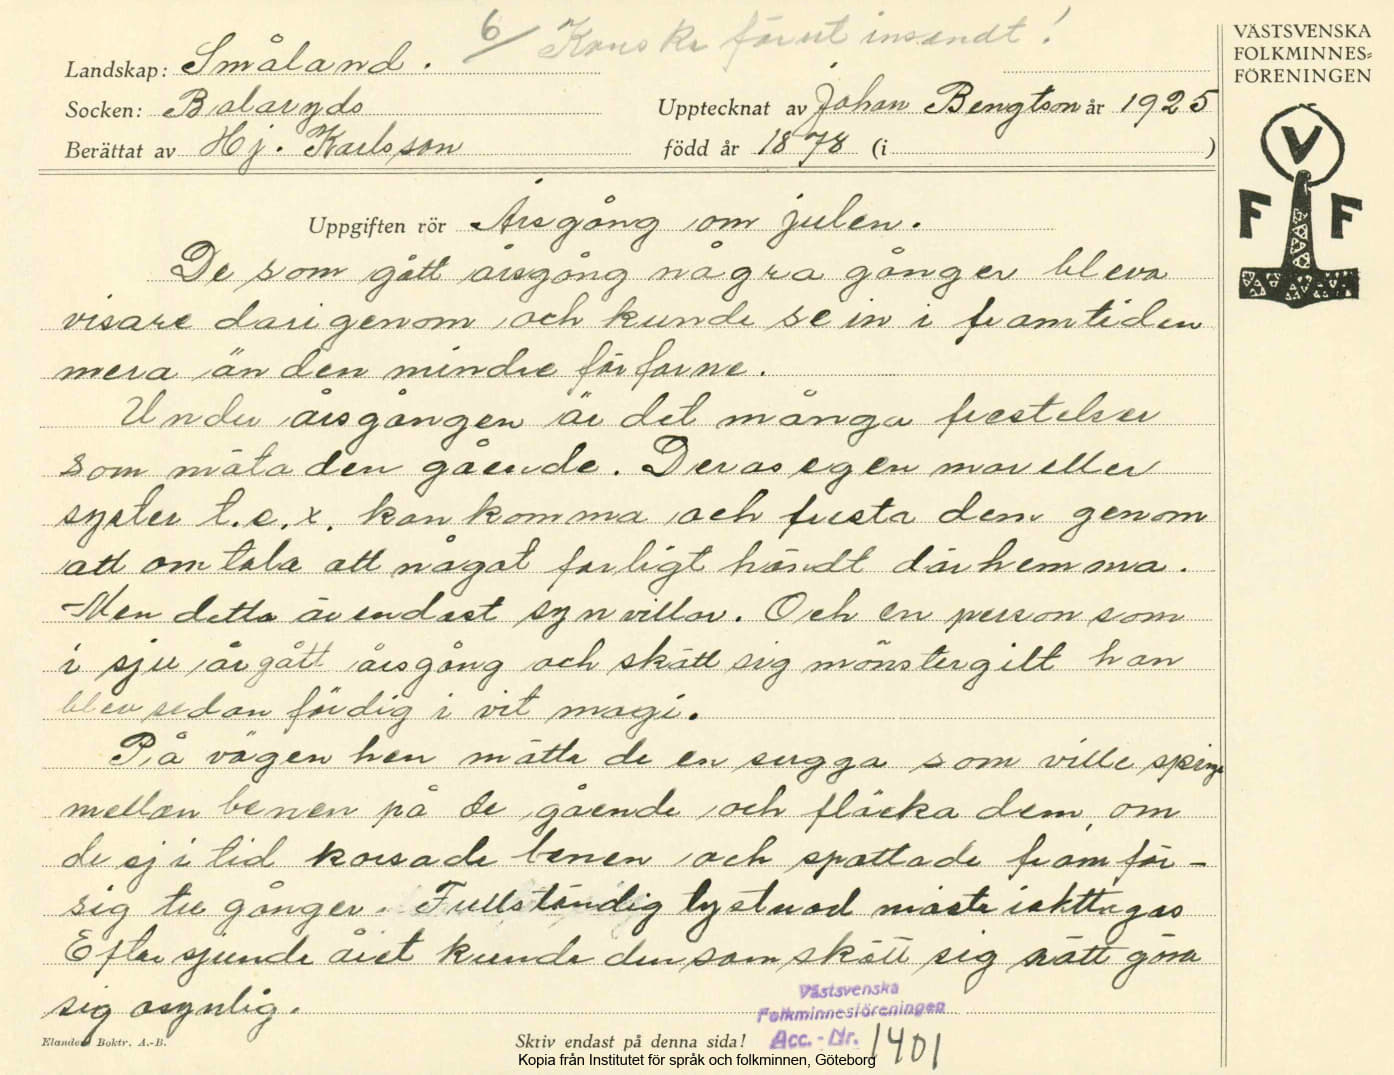 6/ Kanske förut insandt!
Landskap: Småland.
Socken: Balaryds
Upptecknat av Johan Bengtson år 1925
Berättat av Hj. Karlsson
född år 1878 (i )
VÄSTSVENSKA
FOLKMINNES-
FÖRENINGEN
V
F F
Uppgiften rör Årsgång om julen.
De som gått årsgång några gånger bleva
visare darigenom och kunde se in i framtiden
mera än den mindre förfarne.
Under årsgången är det många frestelser
som möta den gående. Deras egen mor eller
syster t.e.x. kan komma och fresta dem genom
att omtala att något farligt händt där hemma.
Men detta är endast synvillor. Och en person som
i sju år gått årsgång och skött sig mönstergilt han
blev sedan färdig i vit magi.
På vägen hen mötte de en sugga som ville springa
mellan benen på de gående och fläcka dem, om
de ej i tid korsade benen och spottade framför-
sig tre gånger. Fullständig tystnad måste iakttagas
Efter sjunde året kunde den som skött sig rätt göra
sig osynlig.
Västsvenska
Folkminnesföreningen
Acc.-Nr. 1401
Elanders Boktr. A.-B.
Skriv endast på denna sida!
Kopia från Institutet för språk och folkminnen, Göteborg